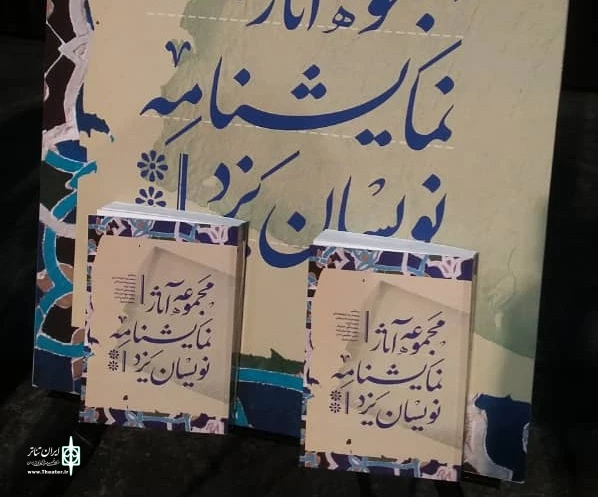 مجموعه آثار
نمایشنامه
نویسان یزد ۱
مجموعه آثار
نمایشنامه
نویسان یزد ۱
مجموعه آثار
نمایشنامه
نویسان یزد ۱
ایران تئاتر
www.Theater.ir